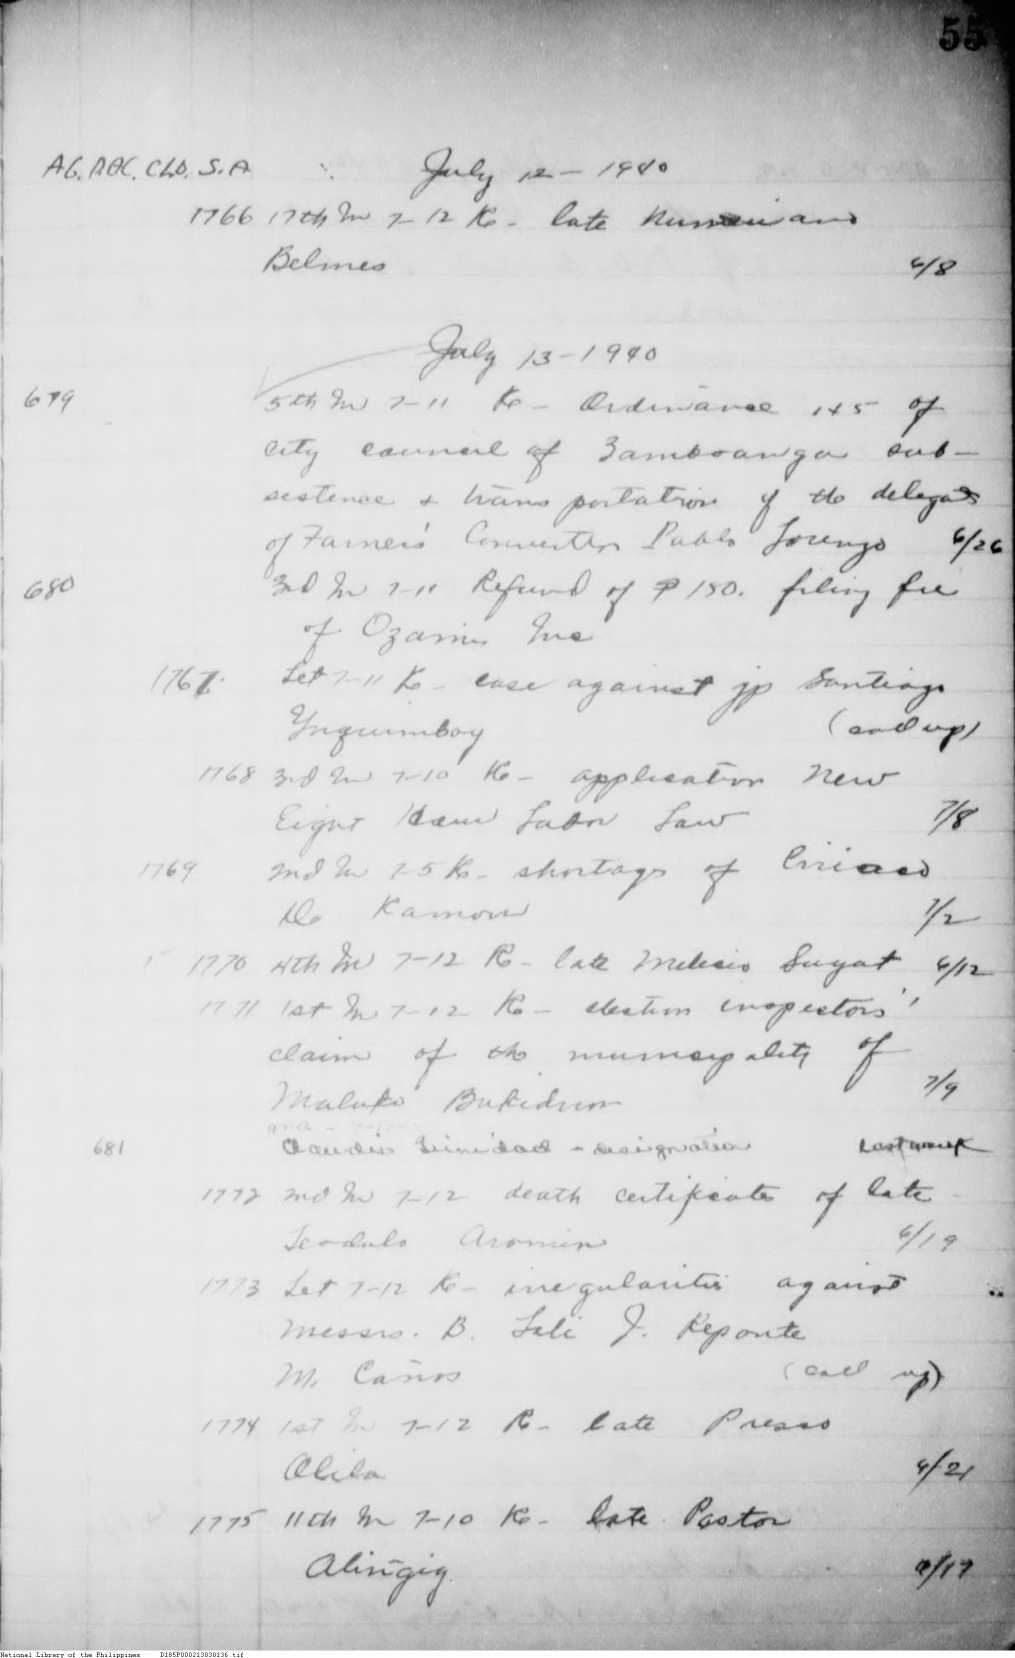 55
AG. DOC. CLD. S. A
July 12 - 1940
1766 17th In 7-12 Re - late
Belmes 6/8
July 13 - 1940
679 5th In 7-11 Re - Ordinance 145 of
city council of Zamboanga sub-
sistence & transportation of the delegates
of Farmers' Convention Pablo Lorenzo 6/26
680 3rd In 7-11 Refund of ₱ 150. filing fee
of Ozamis Inc
1767. Let 7-11 Re - case against jp Santiago
Ynquimboy (call up)
1768 3rd In 7-10 Re - application New
Eight Hour Labor Law 7/8
1769 2nd In 7-5 Re - shortage of Ciriaco
De Ramon 7/2
1770 4th In 7-12 Re - late Melecio Sugat 6/12
1771 1st In 7-12 Re - election inspectors'
claim of the municipality of
Maluko Bukidnon 7/9
681 Claudio Trinidad - designation Last week
1772 2nd In 7-12 death certificate of late
Teodulo Aromin 6/19
1773 Let 7-12 Re - irregularities against
Messrs. B. Lali J. Reponte
M. Cañas (call up)
1774 1st In 7-12 Re - late Presco
Olila 6/21
1775 11th In 7-10 Re - late Pastor
Alingig /17
National Library of the Philippines D185P000213830136.tif